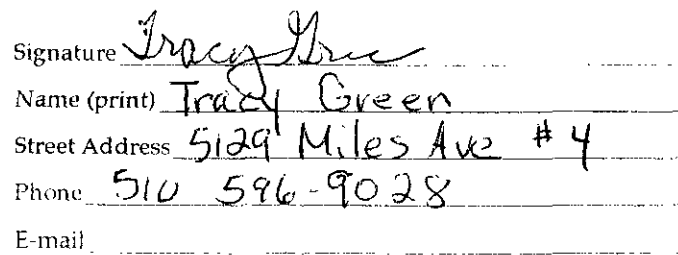 Signature Tracy Gree
Name (print) Tracy Green
Street Address 5129 Miles Ave #4
Phone 510 596-9028
E-mail